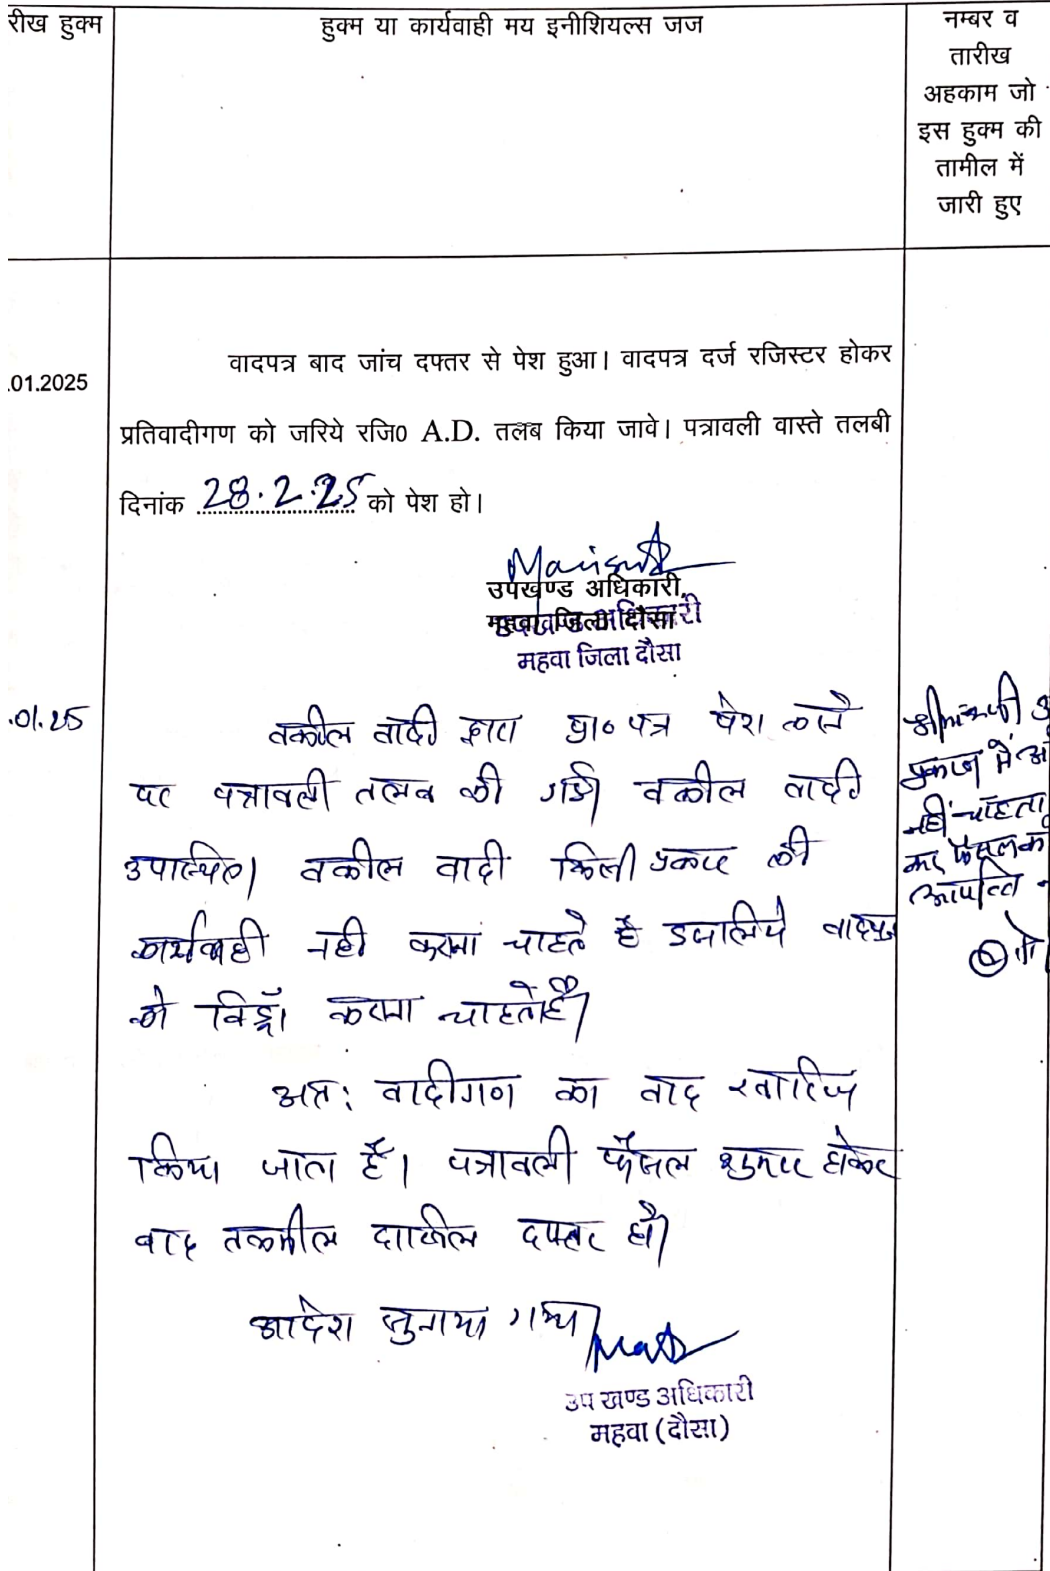 रीख हुक्म
हुक्म या कार्यवाही मय इनीशियल्स जज
नम्बर व
तारीख
अहकाम जो
इस हुक्म की
तामील में
जारी हुए
.01.2025
वादपत्र बाद जांच दफ्तर से पेश हुआ। वादपत्र दर्ज रजिस्टर होकर
प्रतिवादीगण को जरिये रजि0 A.D. तलब किया जावे। पत्रावली वास्ते तलबी
दिनांक 28.2.25 को पेश हो।
उपखण्ड अधिकारी,
महवा जिला दौसा
उपखण्ड अधिकारी
महवा जिला दौसा
.01.25
वकील वादी द्वारा प्रा० पत्र पेश करने
पर पत्रावली तलब की गई। वकील वादी
उपस्थित। वकील वादी किसी प्रकार की
कार्यवाही नही करना चाहते है इसलिये
को विड्रॉ करना चाहते है।
अत: वादीगण का वाद खारिज
किया जाता है। पत्रावली फैसल शुमार होकर
बाद तकमील दाखिल दफ्तर हो।
आदेश सुनाया गया
उप खण्ड अधिकारी
महवा (दौसा)
नहीं चाहता
आपत्ति